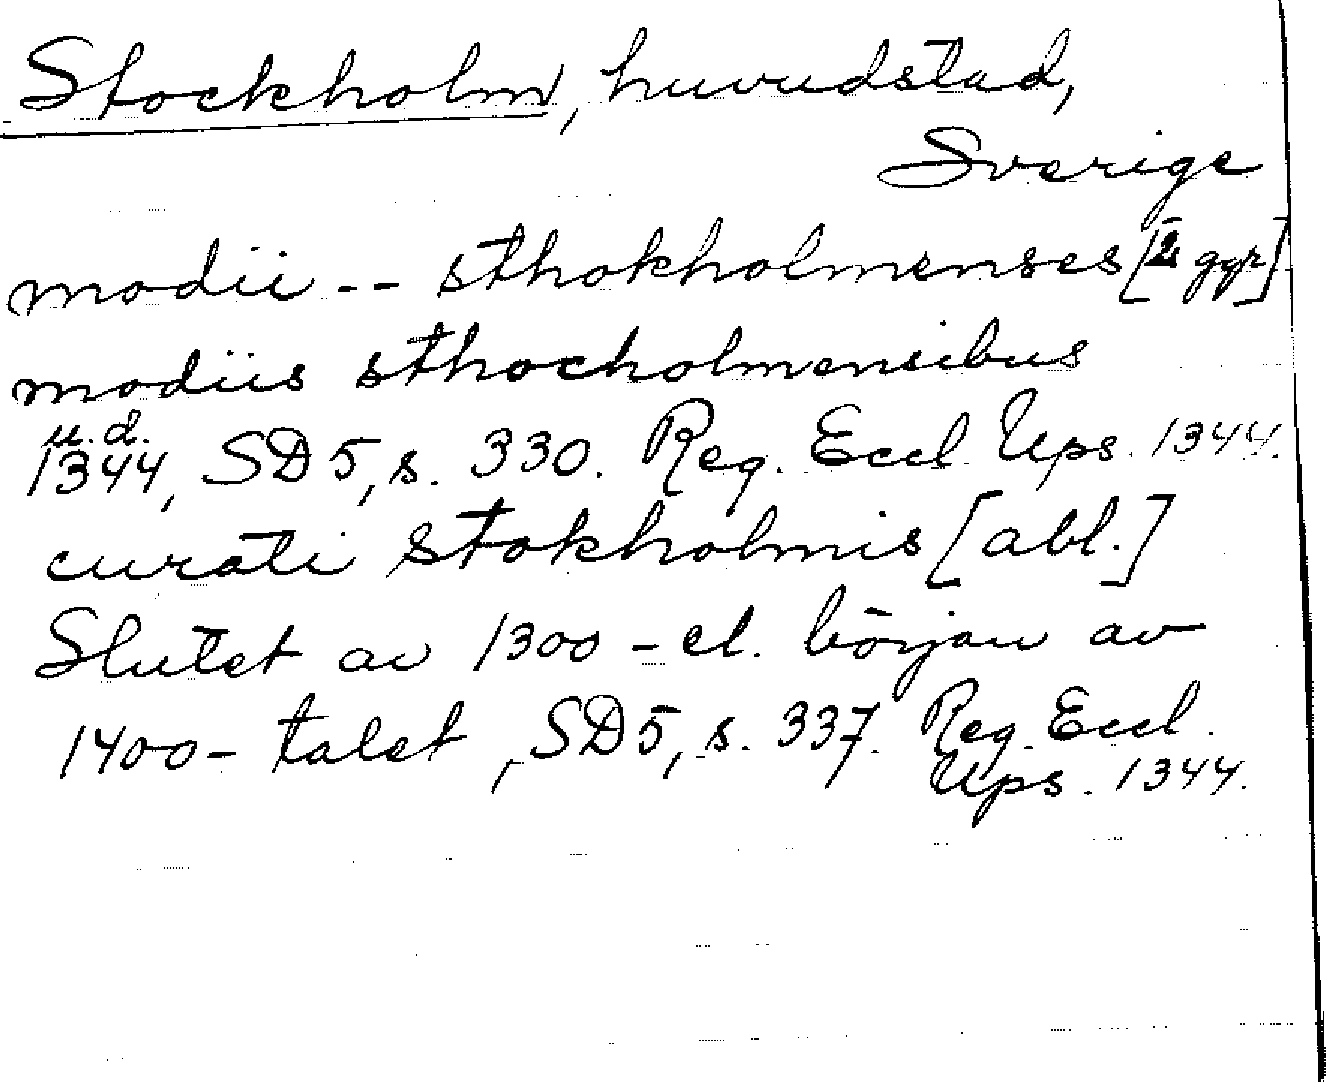 Stockholm, huvudstad,
Sverige
modii -- sthokholmenses [2 ggr]
modiis sthocholmensibus
u.d.
1344, SD 5, s. 330. Reg. Eccl. Ups. 1344.
curati Stokholmis [abl.]
Slutet av 1300-el. början av
1400-talet, SD 5, s. 337. Reg. Eccl.
Ups. 1344.